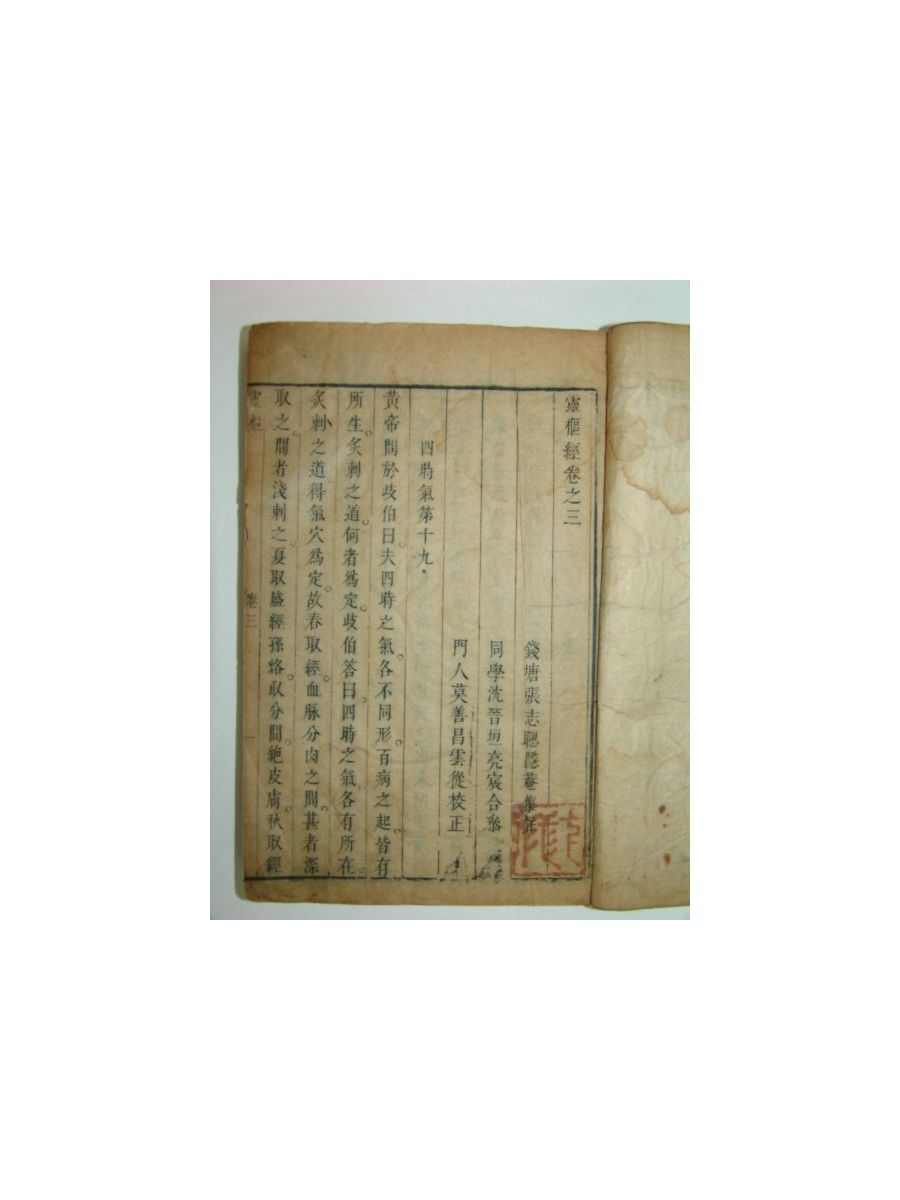 靈樞經卷之三
錢塘張志聰隱菴集註
同學沈晉垣亮宸合叅
門人莫善昌雲從校正
四時氣第十九
黃帝問於歧伯曰夫四時之氣。各不同形。百病之起。皆有
所生。灸刺之道。何者爲定。歧伯答曰。四時之氣各有所在。
灸刺之道得氣穴爲定。故春取經。血脉分肉之間。甚者深
取之。間者淺刺之。夏取盛經孫絡。取分間。絶皮膚。秋取經
靈樞 卷三